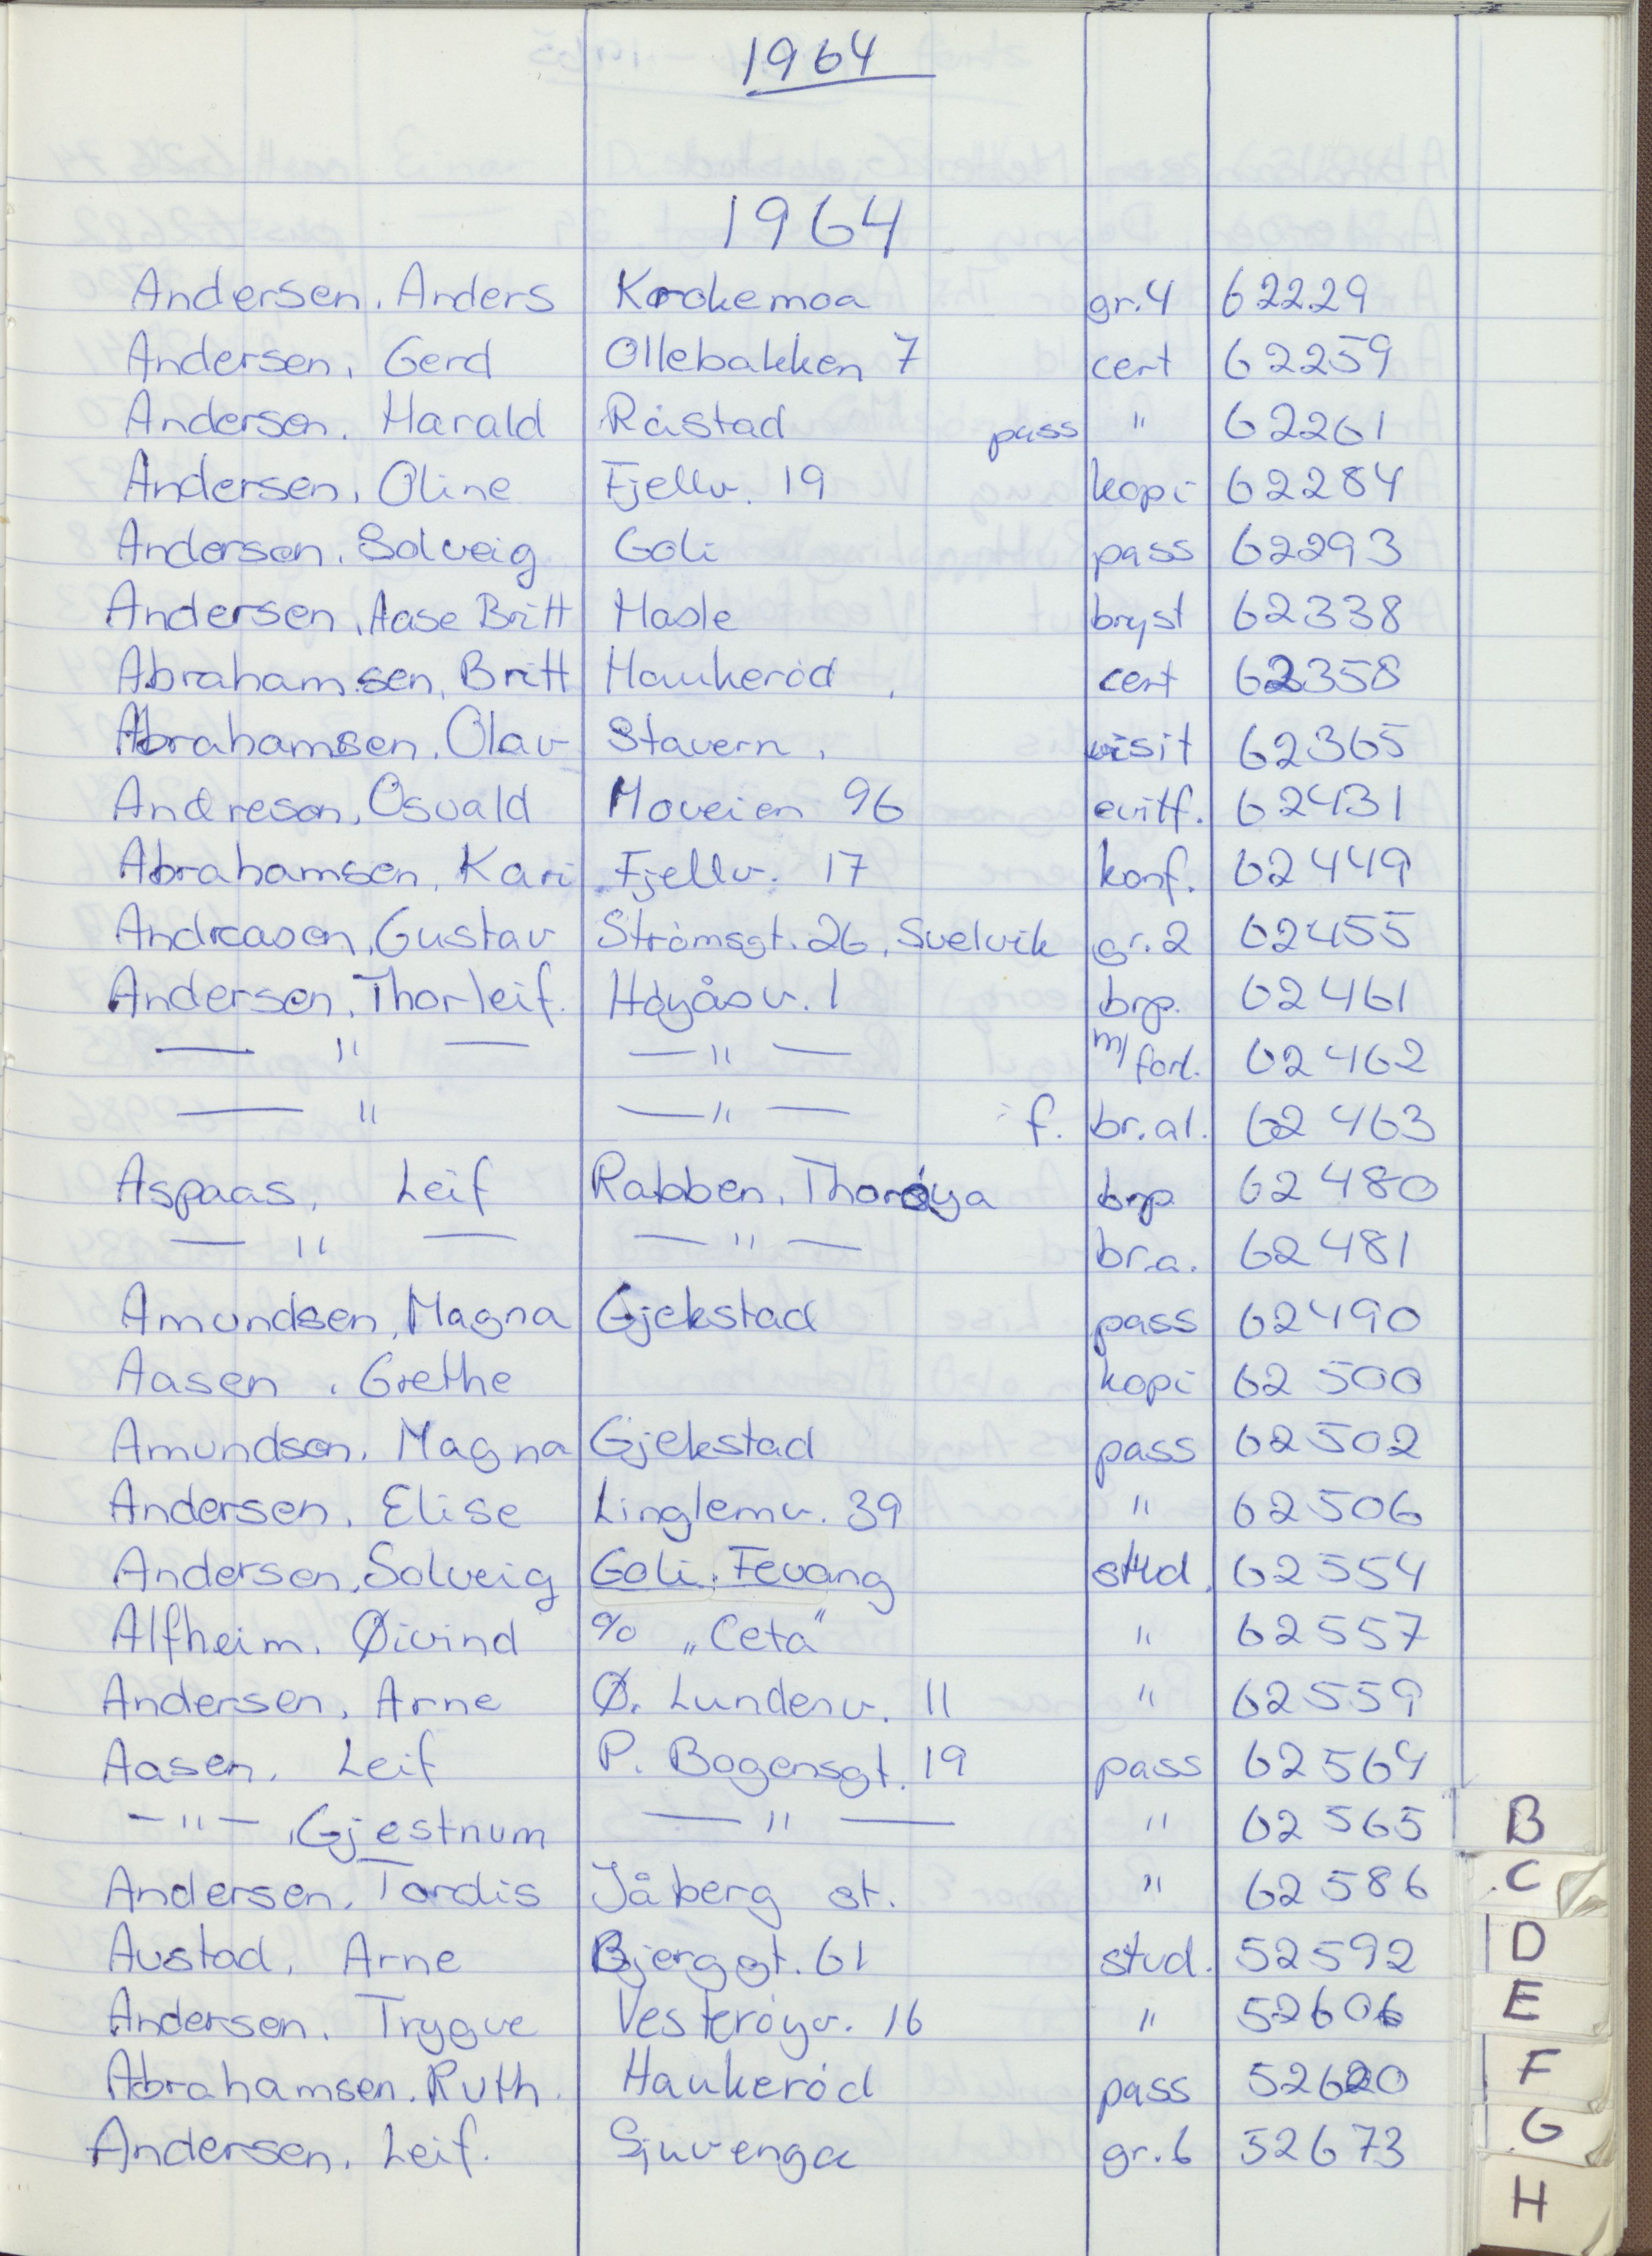 1964
1964
Andersen, Anders Krokemoa gr.4 62229
Andersen, Gerd Ollebakken 7 cert 62259
Andersen, Harald Råstad pass " 62261
Andersen, Oline Fjellv. 19 kopi 62284
Andersen, Solveig Goli pass 62293
Andersen, Aase Britt Hasle bryst 62338
Abrahamsen, Britt Haukerød, cert 62358
Abrahamsen, Olav Stavern, visit 62365
Andresen, Osvald Moveien 96 62431
Abrahamsen, Kari Fjellv. 17 konf. 62449
Andreasen, Gustav Strømsgt. 26, Svelvik gr.2 62455
Andersen, Thorleif. Høyåsv. 1 brp. 62461
— " — — " — m/forl. 62462
— " — " — f. br.al. 62463
Aspaas, Leif Rabben, Thorøya brp 62480
— " — — " — br.a. 62481
Amundsen, Magna Gjekstad pass 62490
Aasen, Grethe kopi 62500
Amundsen, Magna Gjekstad pass 62502
Andersen, Elise Linglemv. 39 " 62506
Andersen, Solveig Goli, Fevang stud. 62554
Alfheim, Øivind % „Ceta" " 62557
Andersen, Arne Ø. Lundenv. 11 " 62559
Aasen, Leif P. Bogensgt. 19 pass 62564
— " —, Gjestrum — " — " 62565
Andersen, Tordis Jåberg st. " 62586
Austad, Arne Bjerggt. 61 stud. 52592
Andersen, Trygve Vesterøyv. 16 " 52606
Abrahamsen, Ruth. Haukerød pass 52620
Andersen, Leif. Sjuvenga gr.6 52673
B
C
D
E
F
G
H